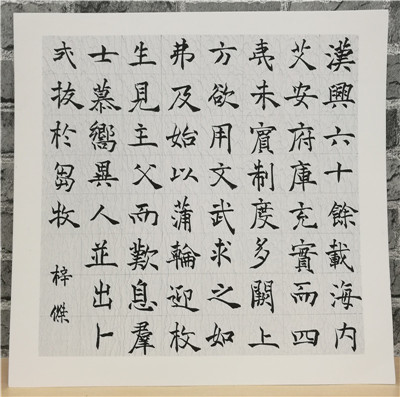 漢興六十餘載海内
艾安府庫充實而四
夷未賓制度多闕上
方欲用文武求之如
弗及始以蒲輪迎枚
生見主父而歎息羣
士慕嚮異人並出卜
式拔於芻牧
梓傑